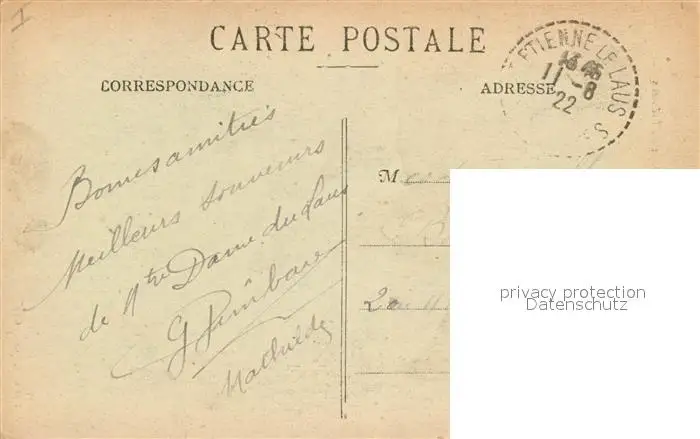 1
CARTE POSTALE
CORRESPONDANCE
ADRESSE
ETIENNE LE LAUS
11-8
22
Bonnes amitiés
Meilleurs souvenirs
de Ntre Dame du Laus
Mathilde
M
privacy protection
Datenschutz